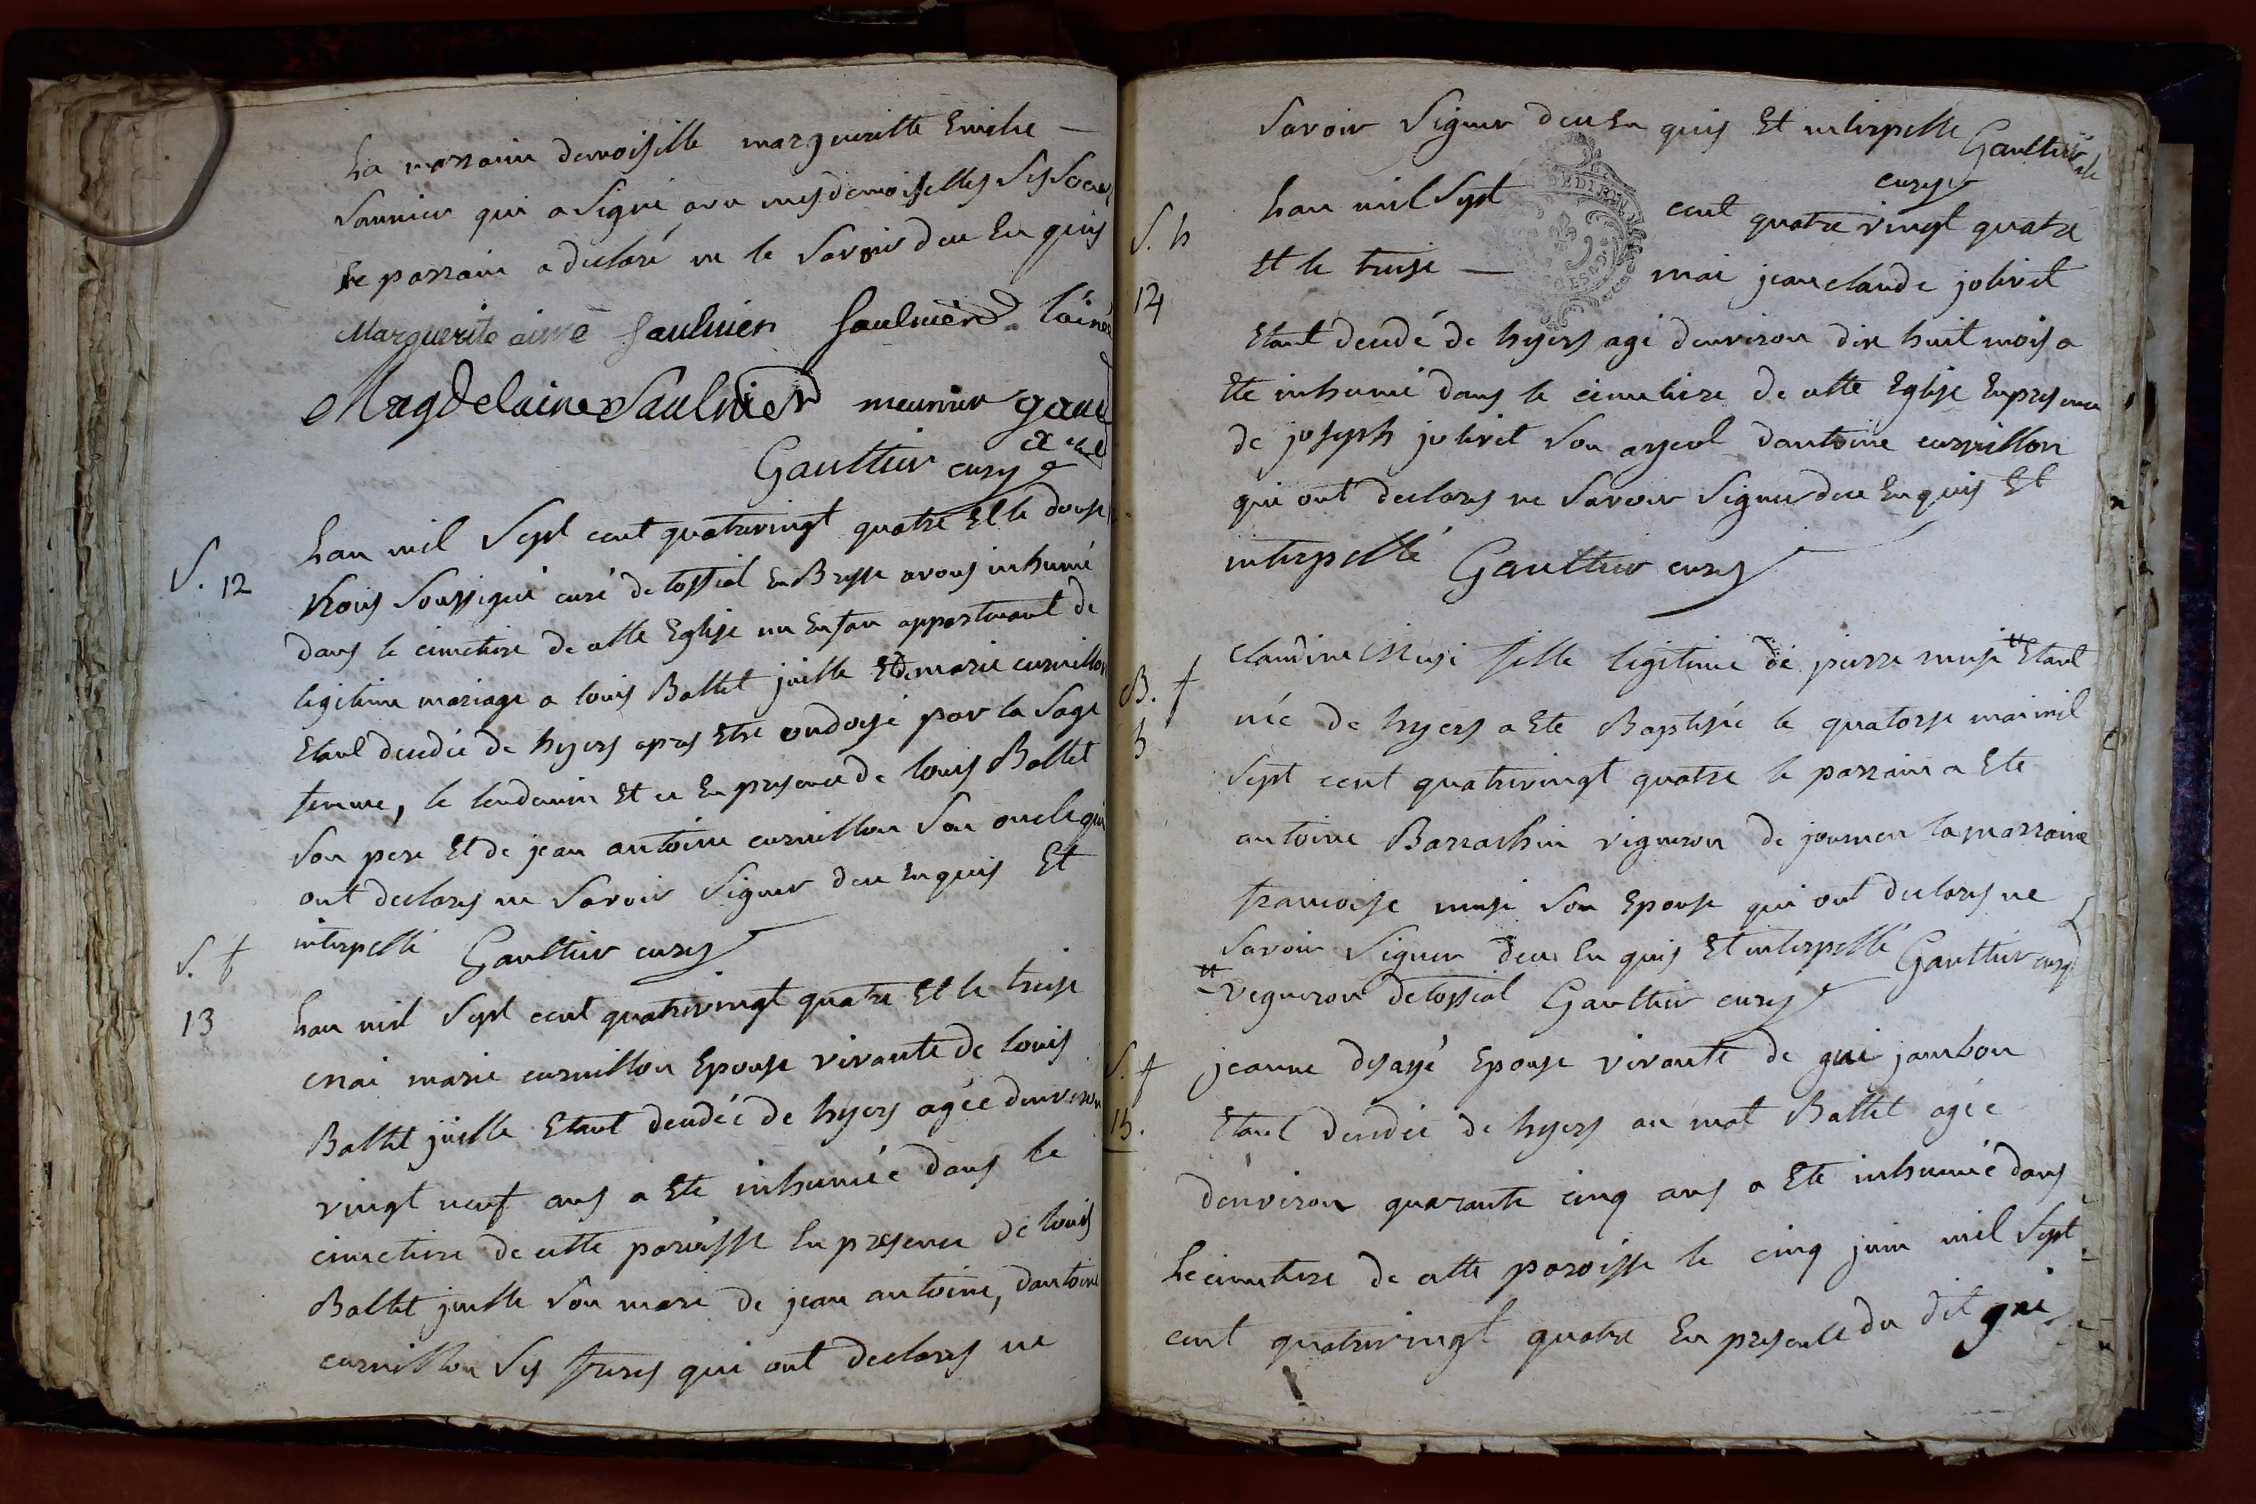 La marraine demoiselle margueritte Emilie —
Saunier qui a signé avec mesdemoiselles ses soeurs
le parrain a declaré ne le savoir deu Enquis
Marguerite aimé Saulnier Saulnier L'ainée
Magdelaine Saulnier meunier
Gaultier curé
S. 12
Lan mil Sept cent quatrevingt quatre Et le douse
Nous soussigné curé de tossiat En Bresse avons inhumé
dans le cimetiere de cette Eglise un Enfan appartenant de
legitime mariage a louis Bollet juille Et de marie curnillon
Etant decedée de hyers apres Etre ondoyé par la sage
femme, le lendemin Et ce En presence de louis Bollet
son pere Et de jean antoine curnillon son oncle qui
ont declarés ne savoir signer deu Enquis Et
interpellé Gaultier curé
S. f
13
Lan mil Sept cent quatrevingt quatre Et le treise
mai marie curnillon Epouse vivante de louis
Bollet juille Etant decedée de hyers agée denviron
vingt neuf ans a Ete inhumée dans le
cimetiere de cette paroisse En presence de louis
Bollet juille son mari de jean antoine, dantoine
curnillon ses freres qui ont declarés ne
savoir signer deu Enquis Et interpellé Gaultier
curé
S. h
14
Lan mil Sept cent quatre vingt quatre
Et le treise — mai jean claude jolivet
Etant decedé de hyers agé denviron dix huit mois a
Ete inhumé dans le cimetiere de cette Eglise En presence
de joseph jolivet son ayeul dantoine curnillon
qui ont declarés ne savoir signer deu Enquis Et
interpellé Gaultier curé
B. f
claudine fille legitime de pierre Etant
née de hyers a Ete Baptisée le quatorse mai mil
Sept cent quatrevingt quatre le parrain a Ete
antoine Barrathin vigneron de journan la marraine
francoise son Epouse qui ont declarés ne
savoir signer deu Enquis Et interpellé Gaultier curé
vigneron de tossiat Gaultier curé
S. f
15.
jeanne Epouse vivante de gui jambon
Etant decedée de hyers au mat Bollet agée
denviron quarante cinq ans a Ete inhumée dans
le cimetiere de cette paroisse le cinq juin mil Sept
cent quatrevingt quatre En presence du dit gui